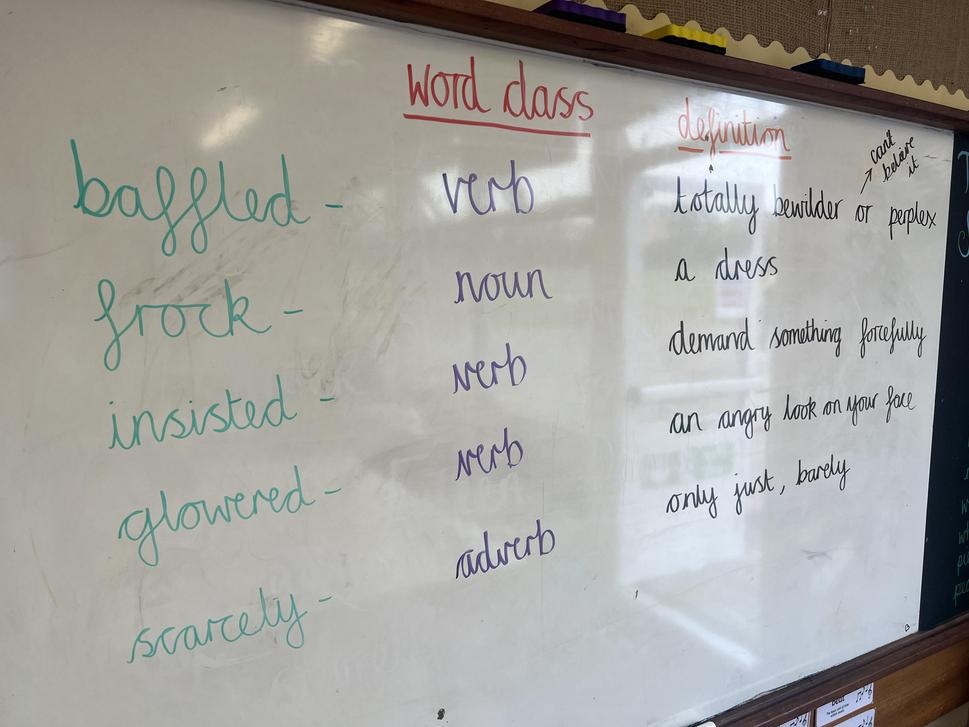 word class
definition
can't
believe
it
baffled - verb totally bewilder or perplex
frock - noun a dress
insisted - verb demand something forcefully
glowered - verb an angry look on your face
scarcely - adverb only just, barely